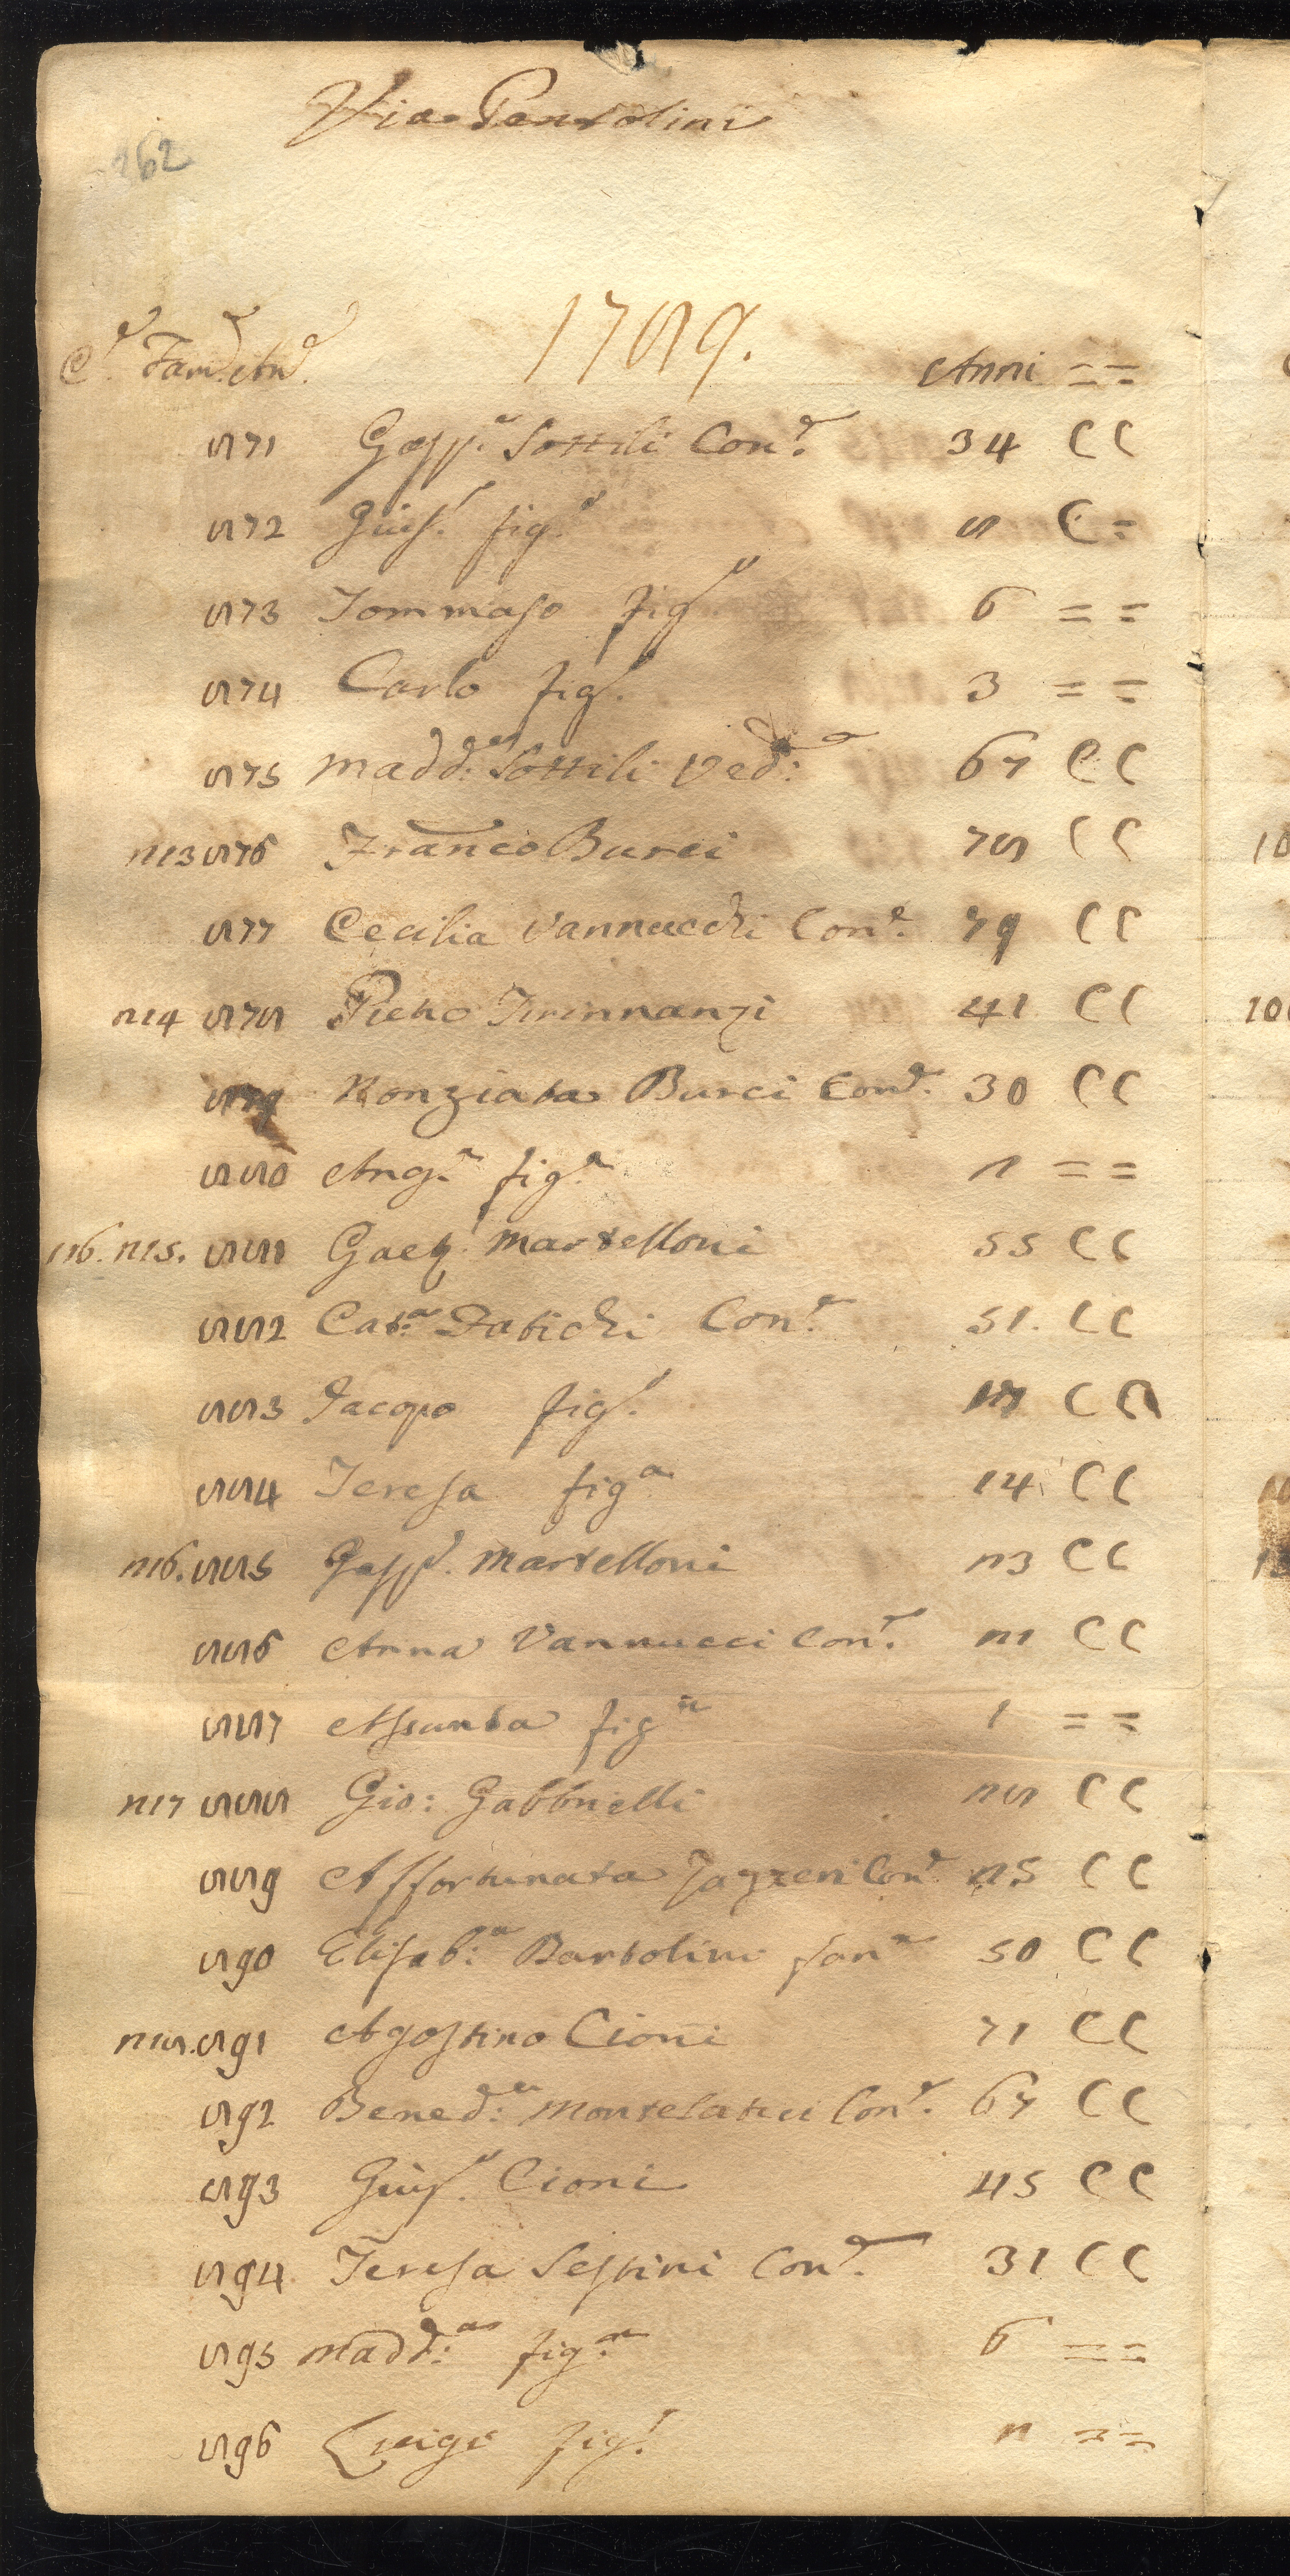 Via Pantolini
262
1789.
C.e Fam.e An.e Anni = =
871 Gasp.e Sottili Con.e 34 C C
872 Gius.e fig.o 8 C =
873 Tommaso fig.o 6 = =
874 Carlo fig.o 3 = =
875 Madd.a Sottili Ved.a 67 C C
213 876 Franco Burci 78 C C
877 Cecilia Vannucchi Con.e 79 C C
214 878 Pietro Tirinnanzi 41 C C
879 Nonziata Burci Con.e 30 C C
880 Ang.a fig.a 2 = =
116. 215. 881 Gaet.o Martelloni 55 C C
882 Cat.a Datichi Con.e 51. C C
883 Jacopo fig.o 17 C C
884 Teresa fig.a 14 C C
216. 885 Gasp.e Martelloni 23 C C
886 Anna Vannucci Con.e 21 C C
887 Assunta fig.a 1 = =
217 888 Gio: Gabbrielli 28 C C
889 Affortunata Con.e 25 C C
890 Elisab.a Bartolini 50 C C
218. 891 Agostino Cioni 71 C C
892 Bened.a Montelatici Con.e 67 C C
893 Gius.e Cioni 45 C C
894 Teresa Sestini Con.e 31 C C
895 Madd.a fig.a 6 = =
896 Luigi fig.o 2 = =